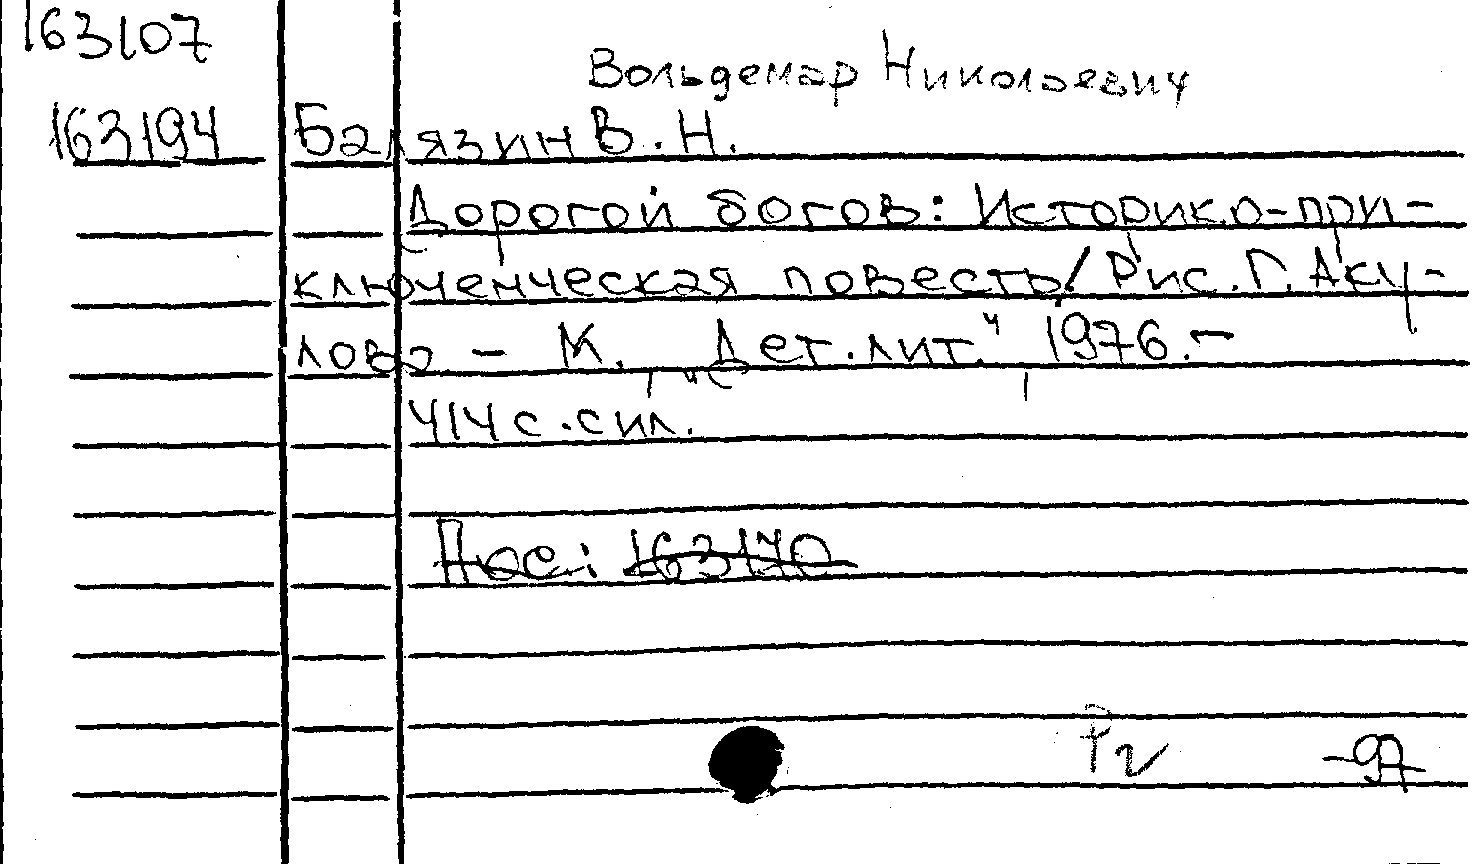 163107
Вольдемар Николаевич
163194 Балязин В. Н.
Дорогой богов: Историко-при-
ключенческая повесть/ Рис. Г. Аку-
лова - М., "Дет. лит." 1976. -
414 с. с ил.
163170